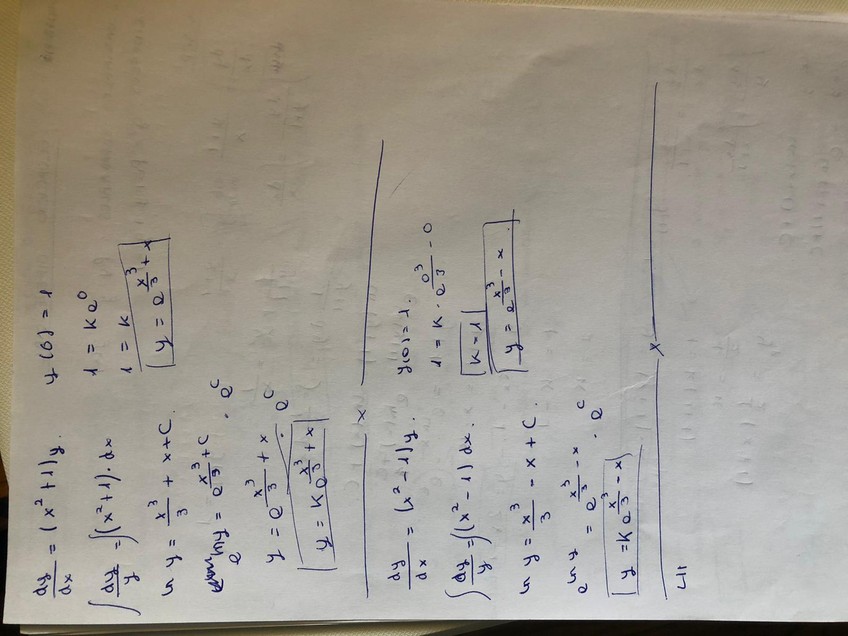 dy/dx = (x² + 1)y. y(0) = 1
∫ dy/y = ∫(x² + 1)·dx 1 = k e⁰
ln y = x³/3 + x + C. 1 = k
y = e^(x³/3 + x)
e^(ln y) = e^(x³/3 + C) · e^C
y = e^(x³/3 + x) · e^C
y = K e^(x³/3 + x)
x
dy/dx = (x² - 1)y. y(0) = 1.
∫ dy/y = ∫(x² - 1) dx. 1 = K · e^(0³/3 - 0)
ln y = x³/3 - x + C. K = 1
y = e^(x³/3 - x).
e^(ln y) = e^(x³/3 - x) · e^C
y = K e^(x³/3 - x)
x